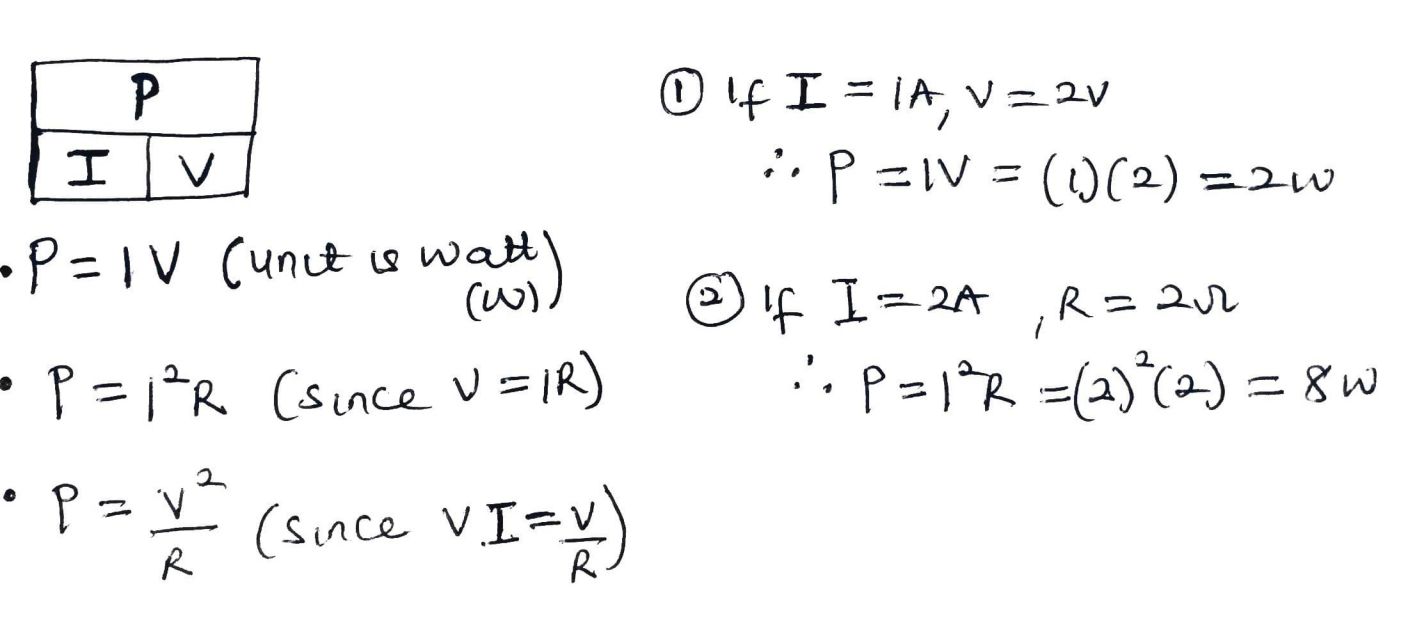 P
I V
• P = IV (unit is watt)
(W)
• P = I²R (since V = IR)
• P = V²/R (since V.I = V/R)
① If I = 1A, V = 2V
∴ P = IV = (1)(2) = 2W
② If I = 2A , R = 2Ω
∴ P = I²R = (2)²(2) = 8W